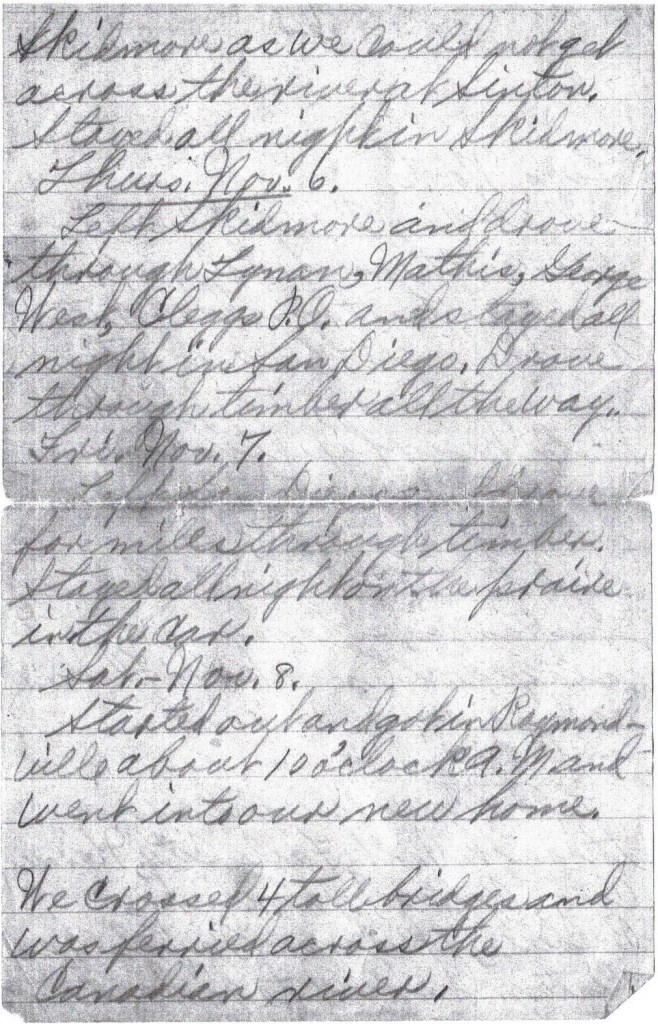 Skidmore as we could not get
across the river at Sinton.
Stayed all night in Skidmore.
Thurs. Nov. 6.
Left Skidmore and drove
through Tynan, Mathis, George
West, Cleggs P.O. and stayed all
night in San Diego. Drove
through timber all the way.
Fri. Nov. 7.
Left San Diego. Drove
for miles through timber.
Stayed all night on the praire
in the car.
Sat.- Nov. 8.
Started out and got in Raymond-
ville about 10 o'clock A.M and
went into our new home.
We crossed 4 toll bridges and
was ferried across the
Canadian river.